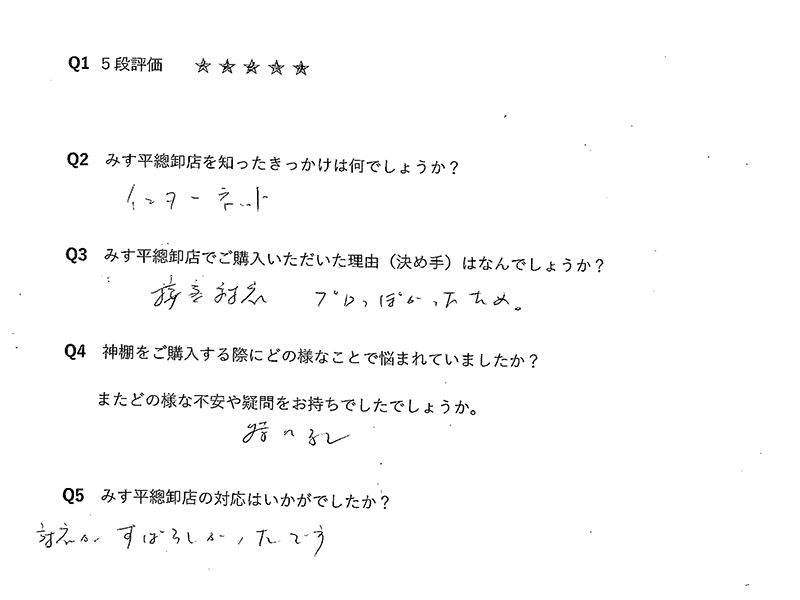 Q1 5段評価 ★★★★★
Q2 みす平總卸店を知ったきっかけは何でしょうか？
インターネット
Q3 みす平總卸店でご購入いただいた理由（決め手）はなんでしょうか？
接客対応 プロっぽかったため。
Q4 神棚をご購入する際にどの様なことで悩まれていましたか？
またどの様な不安や疑問をお持ちでしたでしょうか。
特になし
Q5 みす平總卸店の対応はいかがでしたか？
対応が すばらしかったです